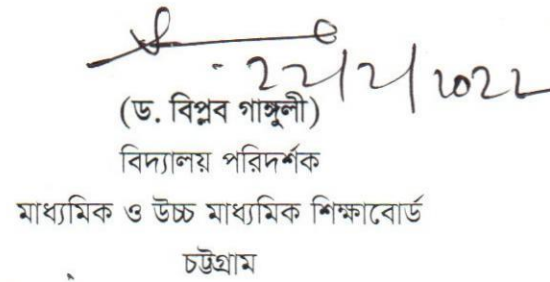 22/2/2022
(ড. বিপ্লব গাঙ্গুলী)
বিদ্যালয় পরিদর্শক
মাধ্যমিক ও উচ্চ মাধ্যমিক শিক্ষাবোর্ড
চট্টগ্রাম